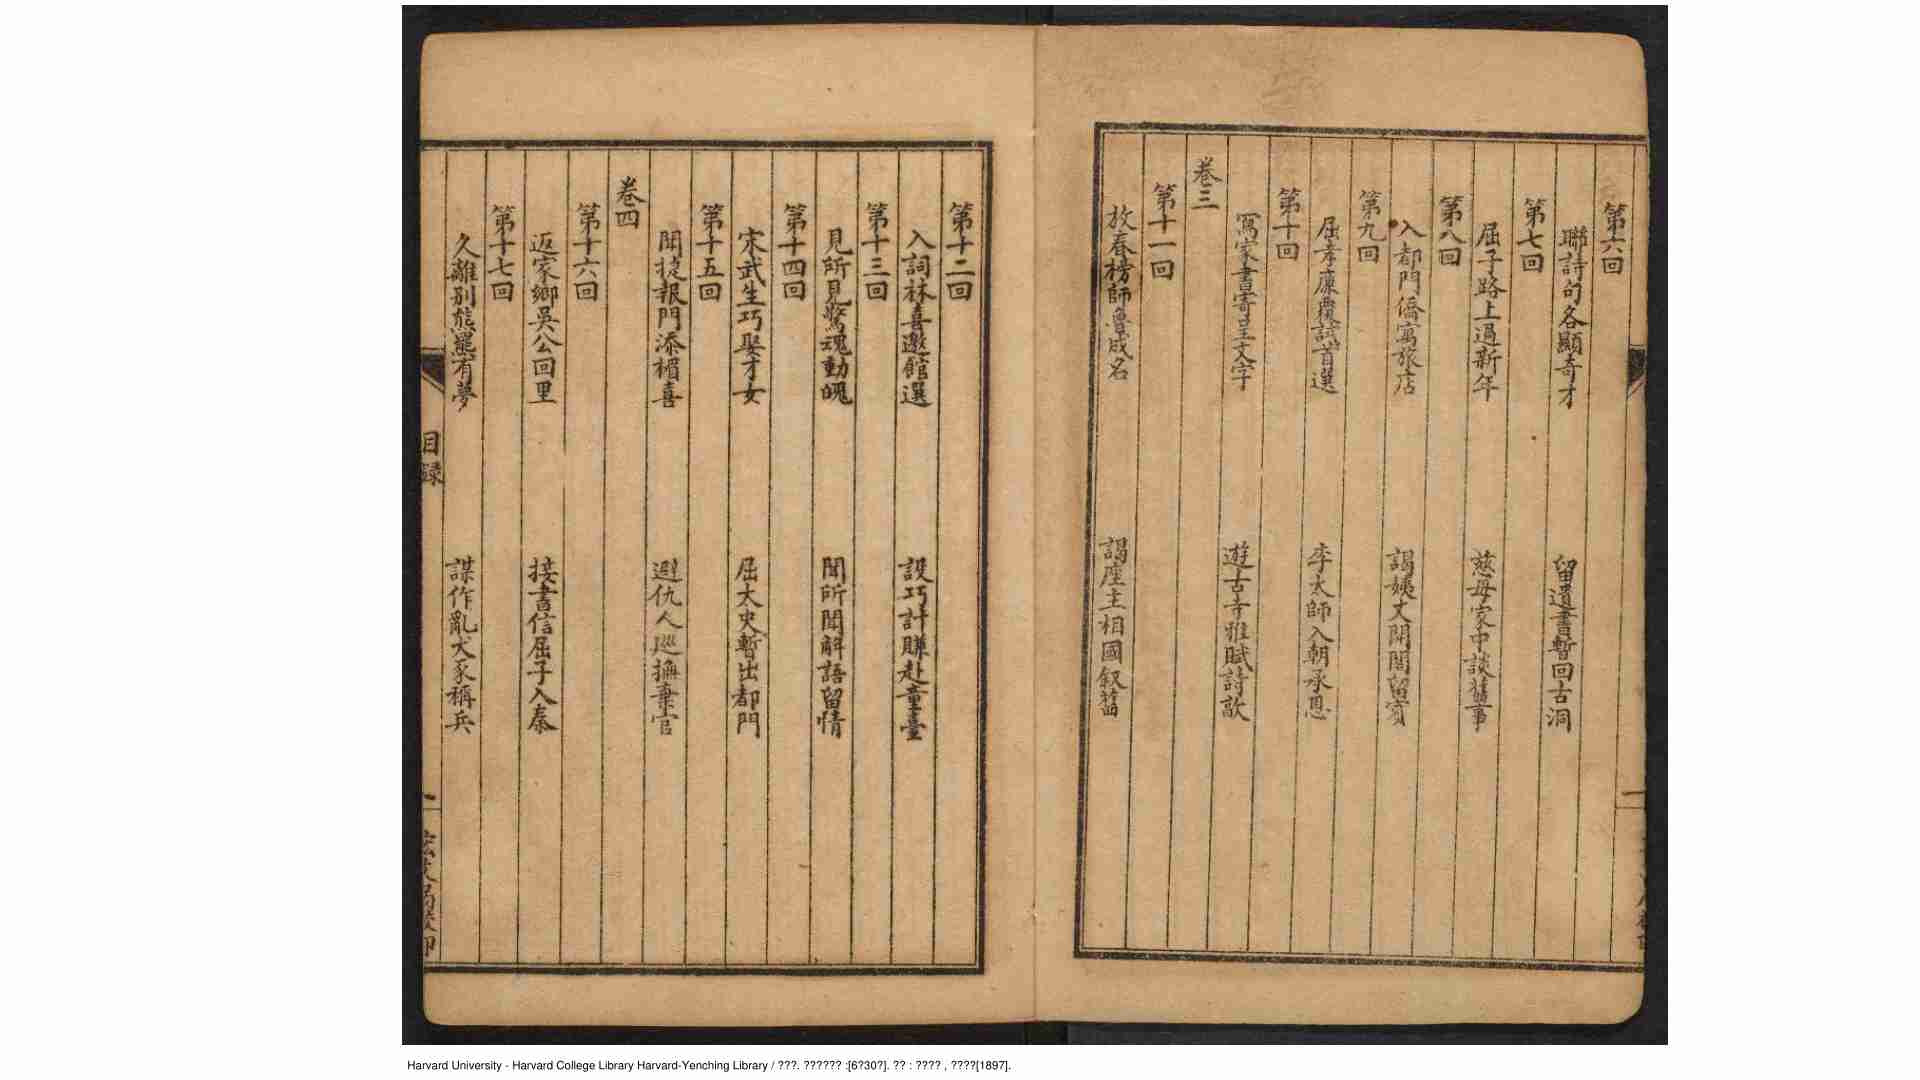 第六回
聯詩句各顯奇才　留遺書暫回古洞
第七回
屈子路上過新年　慈母家中談舊事
第八回
入都門僑寓旅店　謁姨丈開閣留賓
第九回
屈孝廉覆試首選　李太師入朝承恩
第十回
寫家書寄呈文字　遊古寺雅賦詩歌
卷三
第十一回
放春榜師魯成名　謁座主相國叙舊
第十二回
入詞林喜邀館選　設巧計賺赴童臺
第十三回
見所見驚魂動魄　聞所聞解語留情
第十四回
宋武生巧娶才女　屈太史暫出都門
第十五回
聞捷報門添楣喜　避仇人巡撫棄官
卷四
第十六回
返家鄉吳公回里　接書信屈子入秦
第十七回
久離別熊羆有夢　謀作亂犬豕稱兵
目録
一
Harvard University - Harvard College Library Harvard-Yenching Library / ???. ?????? :[6?30?]. ?? : ???? , ????[1897].